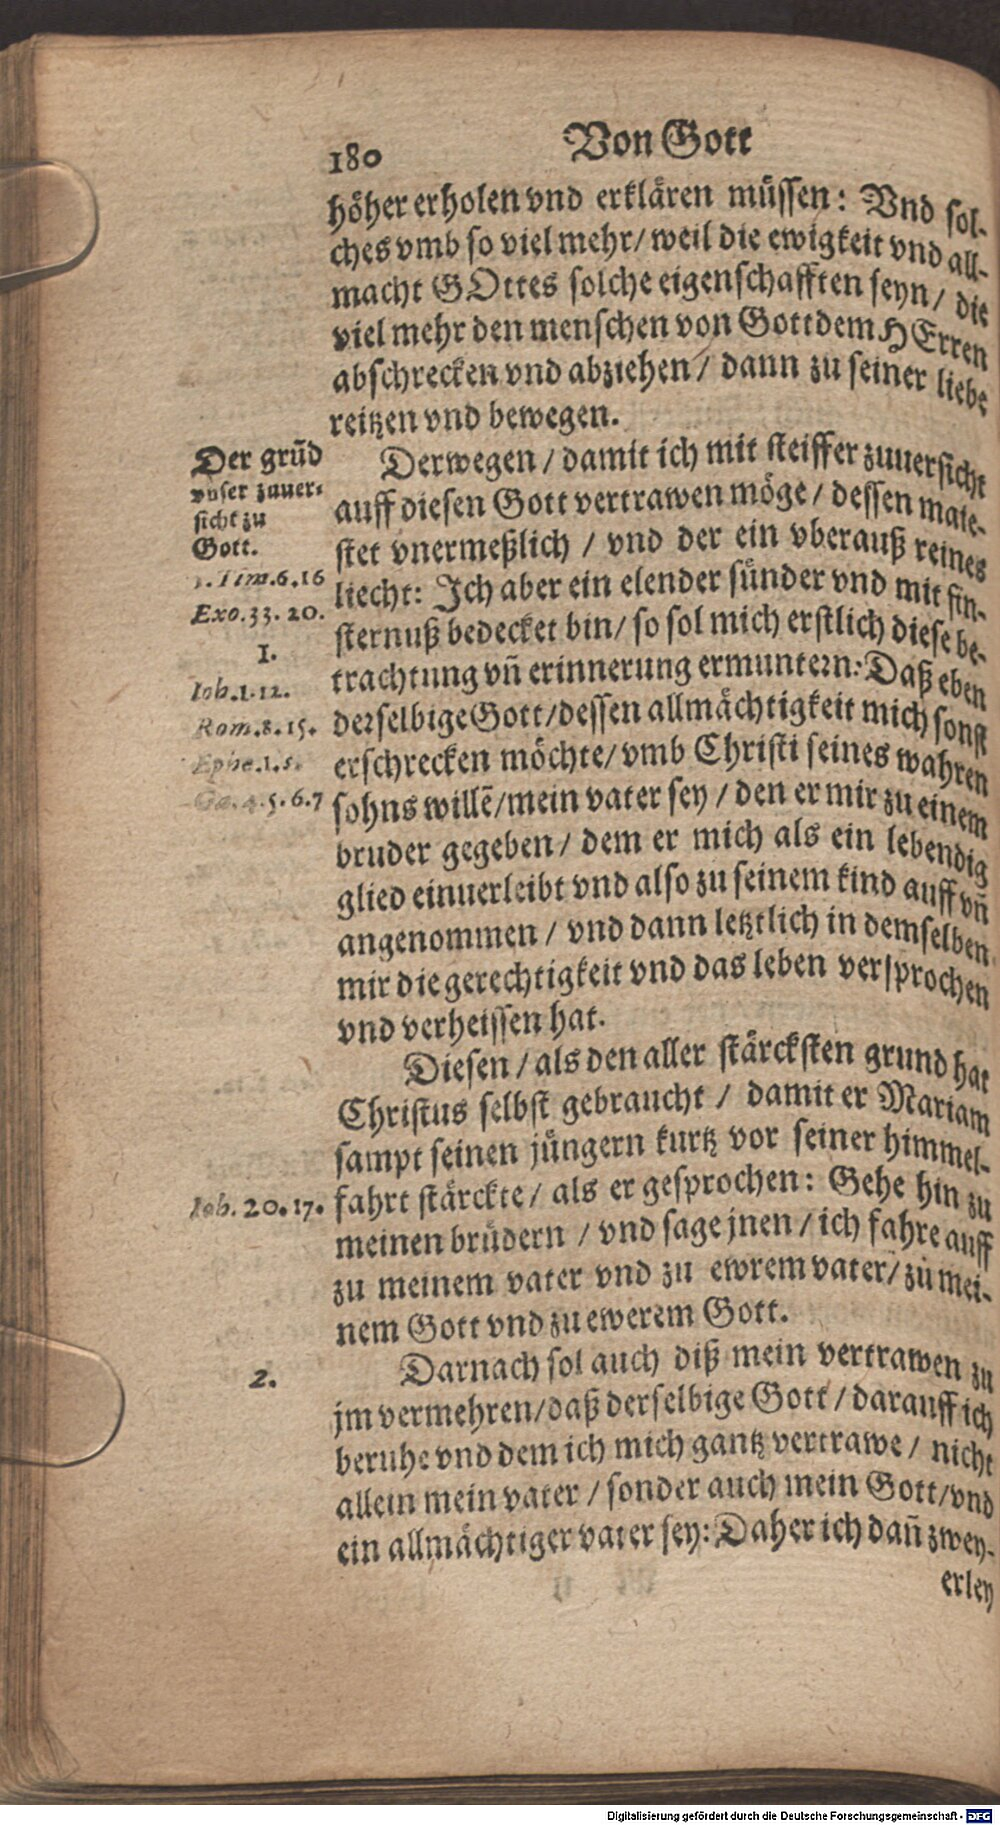 180 Von Gott
höher erholen vnd erklären müssen: Vnd sol-
ches vmb so viel mehr/ weil die ewigkeit vnd all-
macht GOttes solche eigenschafften seyn/ die
viel mehr den menschen von Gott dem HErren
abschrecken vnd abziehen/ dann zu seiner liebe
reitzen vnd bewegen.
Der grūd
vnser zuuer-
sicht zu
Gott.
1. Tim. 6. 16
Exo. 33. 20.
1.
Ioh. 1. 12.
Rom. 8. 15.
Ephe. 1. 5.
Ga. 4. 5. 6. 7
Derwegen/ damit ich mit steiffer zuuersicht
auff diesen Gott vertrawen möge/ dessen maie-
stet vnermeßlich/ vnd der ein vberauß reines
liecht: Ich aber ein elender sünder vnd mit fin-
sternuß bedecket bin/ so sol mich erstlich diese be-
trachtung vñ erinnerung ermuntern: Daß eben
derselbige Gott/dessen allmächtigkeit mich sonst
erschrecken möchte/ vmb Christi seines wahren
sohns willē/mein vater sey/ den er mir zu einem
bruder gegeben/ dem er mich als ein lebendig
glied einuerleibt vnd also zu seinem kind auff vñ
angenommen/ vnd dann letztlich in demselben
mir die gerechtigkeit vnd das leben versprochen
vnd verheissen hat.
Diesen/ als den aller stärcksten grund hat
Christus selbst gebraucht/ damit er Mariam
sampt seinen jüngern kurtz vor seiner himmel-
Ioh. 20. 17.
fahrt stärckte/ als er gesprochen: Gehe hin zu
meinen brüdern/ vnd sage jnen/ ich fahre auff
zu meinem vater vnd zu ewrem vater/ zů mei-
nem Gott vnd zu ewerem Gott.
2.
Darnach sol auch diß mein vertrawen zu
jm vermehren/daß derselbige Gott/ darauff ich
beruhe vnd dem ich mich gantz vertrawe/ nicht
allein mein vater/ sonder auch mein Gott/vnd
ein allmächtiger vater sey: Daher ich dañ zwey-
erley
Digitalisierung gefördert durch die Deutsche Forschungsgemeinschaft - DFG